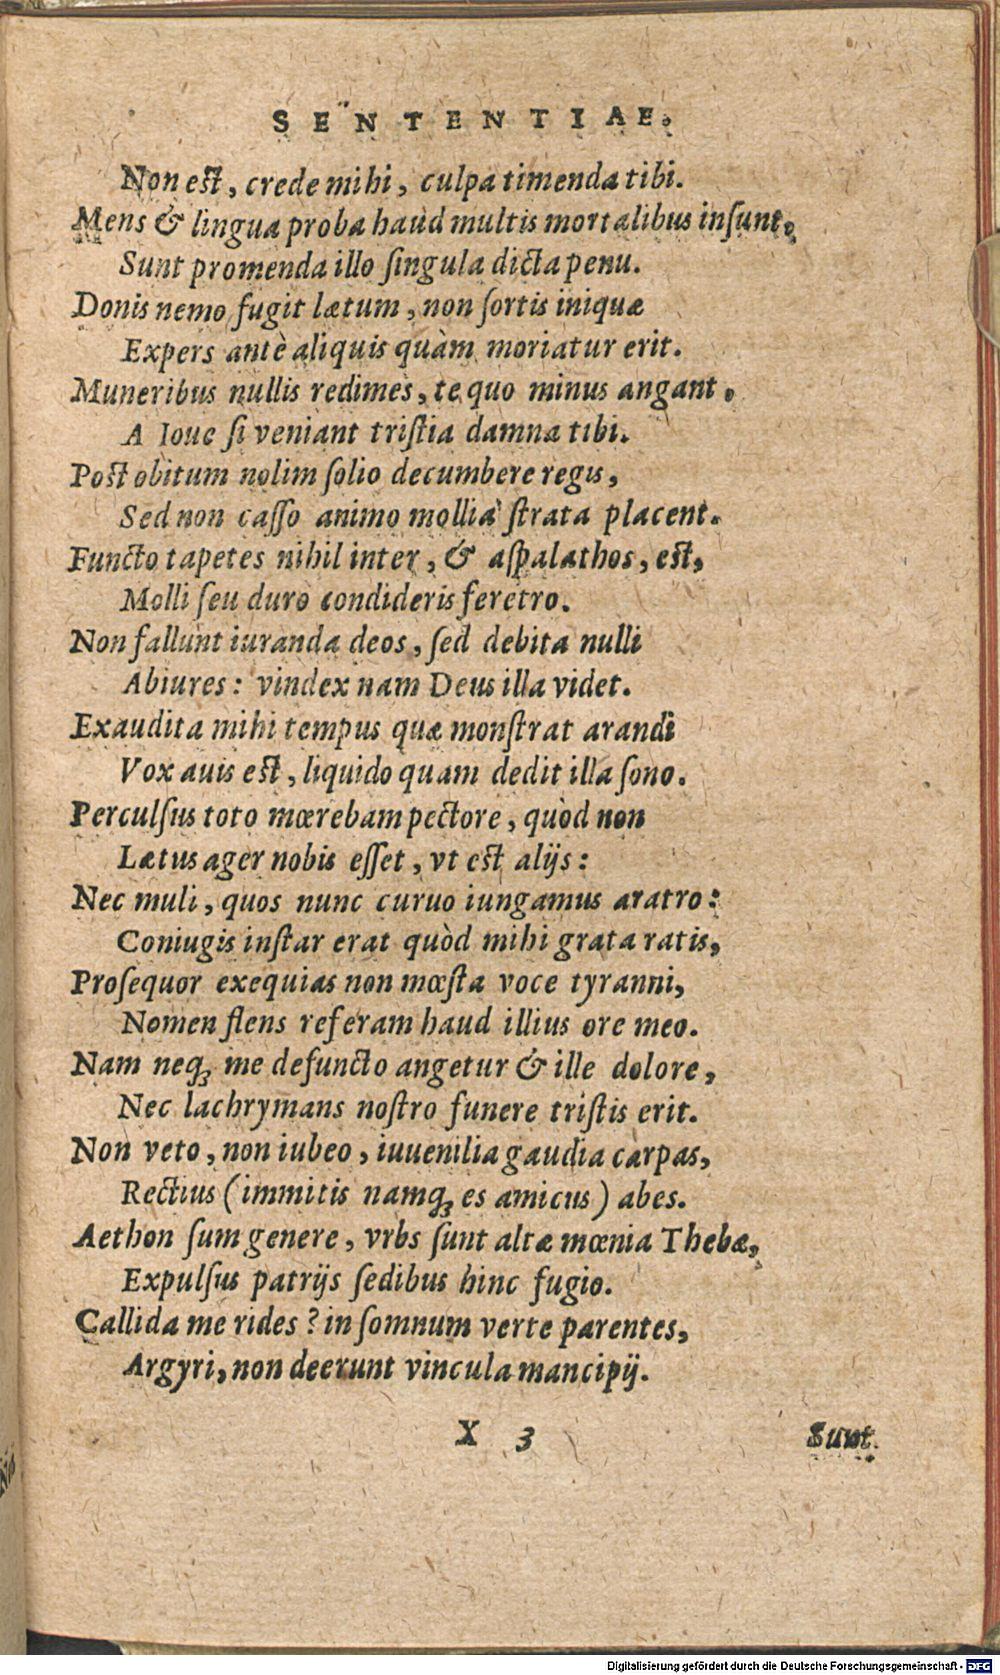 SENTENTIAE.
Non est, crede mihi, culpa timenda tibi.
Mens & lingua proba haud multis mortalibus insunt.
Sunt promenda illo singula dicta penu.
Donis nemo fugit lætum, non sortis iniquæ
Expers antè aliquis quàm moriatur erit.
Muneribus nullis redimes, te quo minus angant.
A Ioue si veniant tristia damna tibi.
Post obitum nolim solio decumbere regis,
Sed non casso animo mollia strata placent.
Functo tapetes nihil inter, & aspalathos, est,
Molli seu duro condideris feretro.
Non fallunt iuranda deos, sed debita nulli
Abiures: vindex nam Deus illa videt.
Exaudita mihi tempus quæ monstrat arandi
Vox auis est, liquido quam dedit illa sono.
Perculsus toto mœrebam pectore, quòd non
Lætus ager nobis esset, vt est alijs:
Nec muli, quos nunc curuo iungamus aratro:
Coniugis instar erat quòd mihi grata ratis,
Prosequor exequias non mœsta voce tyranni,
Nomen flens referam haud illius ore meo.
Nam neqꝫ me defuncto angetur & ille dolore,
Nec lachrymans nostro funere tristis erit.
Non veto, non iubeo, iuuenilia gaudia carpas,
Rectius (immitis namqꝫ es amicus) abes.
Aethon sum genere, vrbs sunt altæ mœnia Thebæ,
Expulsus patrijs sedibus hinc fugio.
Callida me rides? in somnum verte parentes,
Argyri, non deerunt vincula mancipij.
X 3 Sunt
Digitalisierung gefördert durch die Deutsche Forschungsgemeinschaft - DFG